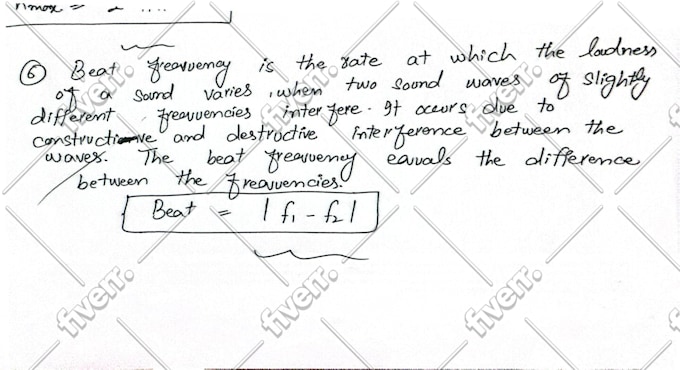 nmax = 2 ....
⑥ Beat frequency is the rate at which the loudness
of a sound varies, when two sound waves of slightly
different frequencies interfere. It occurs due to
constructive and destructive interference between the
waves. The beat frequency equals the difference
between the frequencies.
Beat = | f1 - f2 |